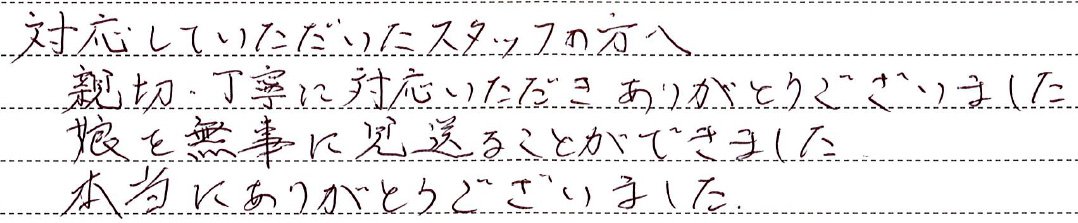 対応していただいたスタッフの方へ
親切・丁寧に対応いただきありがとうございました
娘を無事に見送ることができました
本当にありがとうございました.